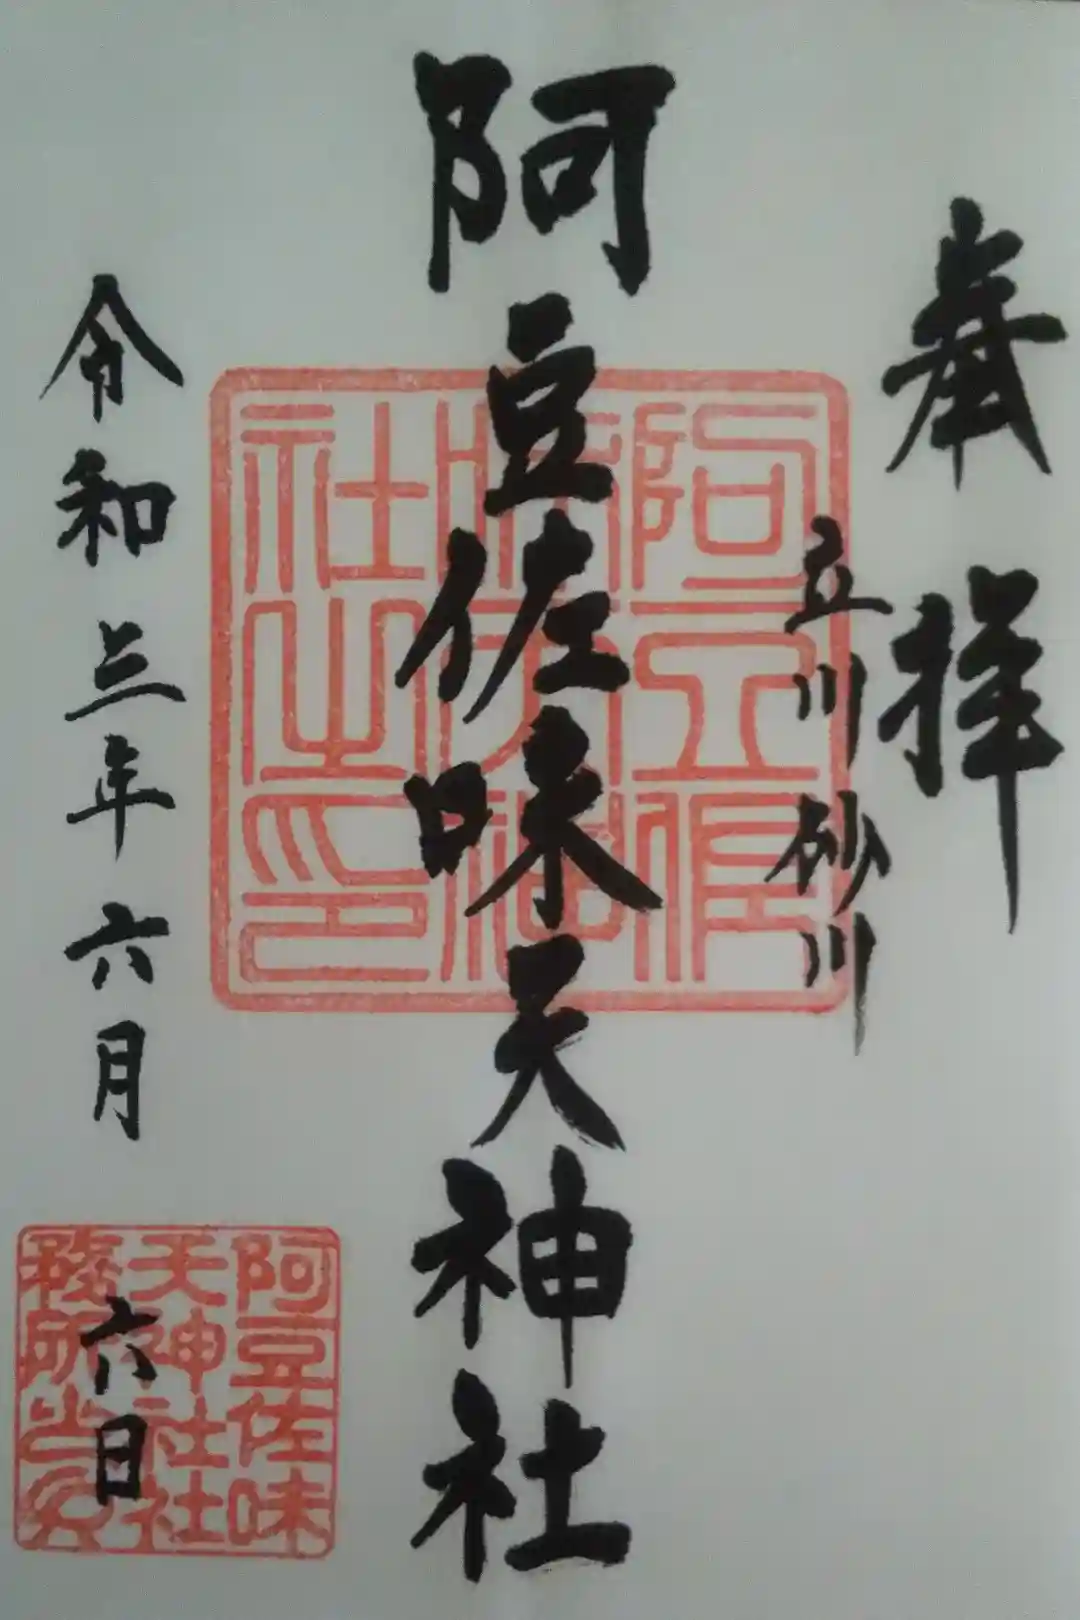 奉拝
立川砂川
阿豆佐味天神社
令和三年六月六日
阿豆佐味
天神社社
務所之印